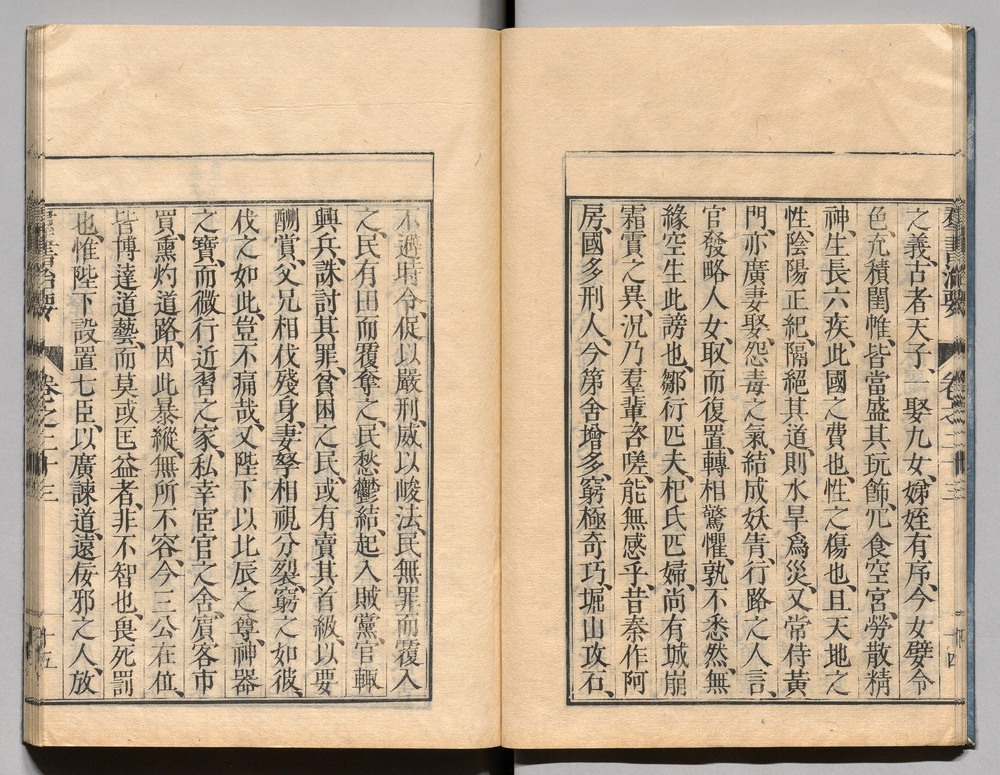 群書治要 卷之二十三 十四
之義、古者天子、一娶九女、娣姪有序、今女嬖令
色、充積閨帷、皆當盛其玩飾、冗食空宮、勞散精
神、生長六疾、此國之費也、性之傷也、且天地之
性、陰陽正紀、隔絕其道、則水旱爲災、又常侍黃
門、亦廣妻娶、怨毒之氣、結成妖眚、行路之人言、
官發略人女、取而復置、轉相驚懼、孰不悉然、無
緣空生此謗也、鄒衍匹夫、杞氏匹婦、尚有城崩
霜霣之異、況乃羣輩咨嗟、能無感乎、昔秦作阿
房、國多刑人、今第舍增多、窮極奇巧、堀山攻石、
不過時令、促以嚴刑、威以峻法、民無罪而覆入
之、民有田而覆奪之、民愁鬱結、起入賊黨、官輒
興兵、誅討其罪、貧困之民、或有賣其首級、以要
酬賞、父兄相伐殘身、妻孥相視分裂、窮之如彼、
伐之如此、豈不痛哉、又陛下以北辰之尊、神器
之寶、而微行近習之家、私幸宦官之舍、賓客市
買、熏灼道路、因此暴縱、無所不容、今三公在位、
皆博達道藝、而莫或匡益者、非不智也、畏死罰
也、惟陛下設置七臣、以廣諫道、遠佞邪之人、放
群書治要 卷之二十三 十五